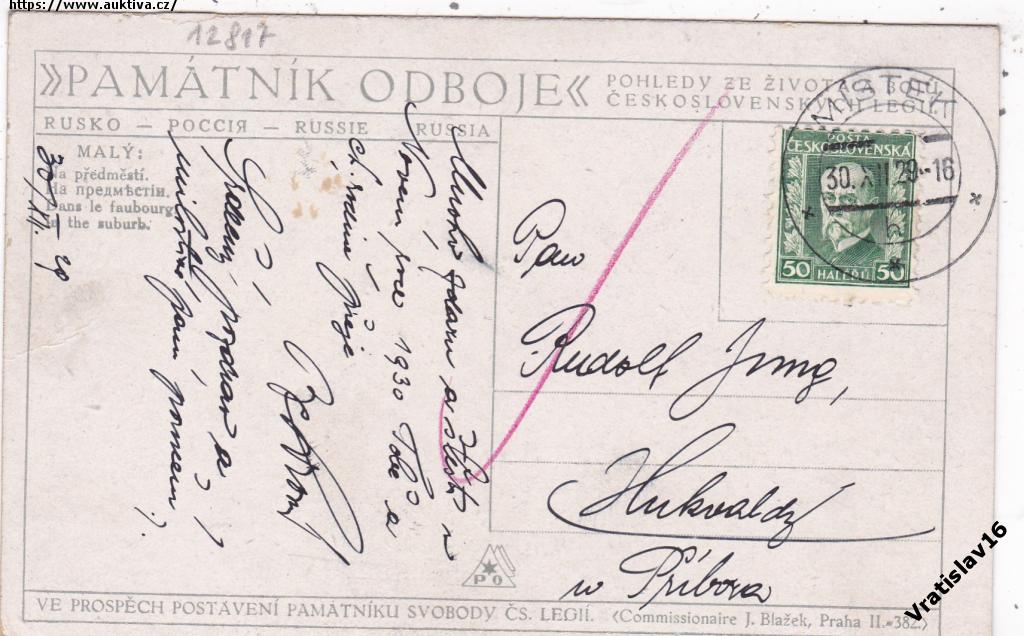 https://www.auktiva.cz/
12817
»PAMÁTNÍK ODBOJE«
POHLEDY ZE ŽIVOTA A BOJŮ
ČESKOSLOVENSKÝCH LEGIÍ.
RUSKO — РОССІЯ — RUSSIE — RUSSIA
MALÝ:
Na předměstí.
На предмѣстіи.
Dans le faubourg.
In the suburb.
30/XII. 29
Mnoho zdaru a štěstí v
Novém roce 1930 Tobě a
ct. rodině přeje
Srdečný pozdrav a
MÍSTEK
30. XII 29.-16
POŠTA
ČESKOSLOVENSKÁ
50 HALÉŘŮ 50
Pan
Rudolf Jung,
Hukvaldy
u Příbora
PO
VE PROSPĚCH POSTAVENÍ PAMÁTNÍKU SVOBODY ČS. LEGIÍ.
(Commissionaire J. Blažek, Praha II.-382.)
Vratislav16